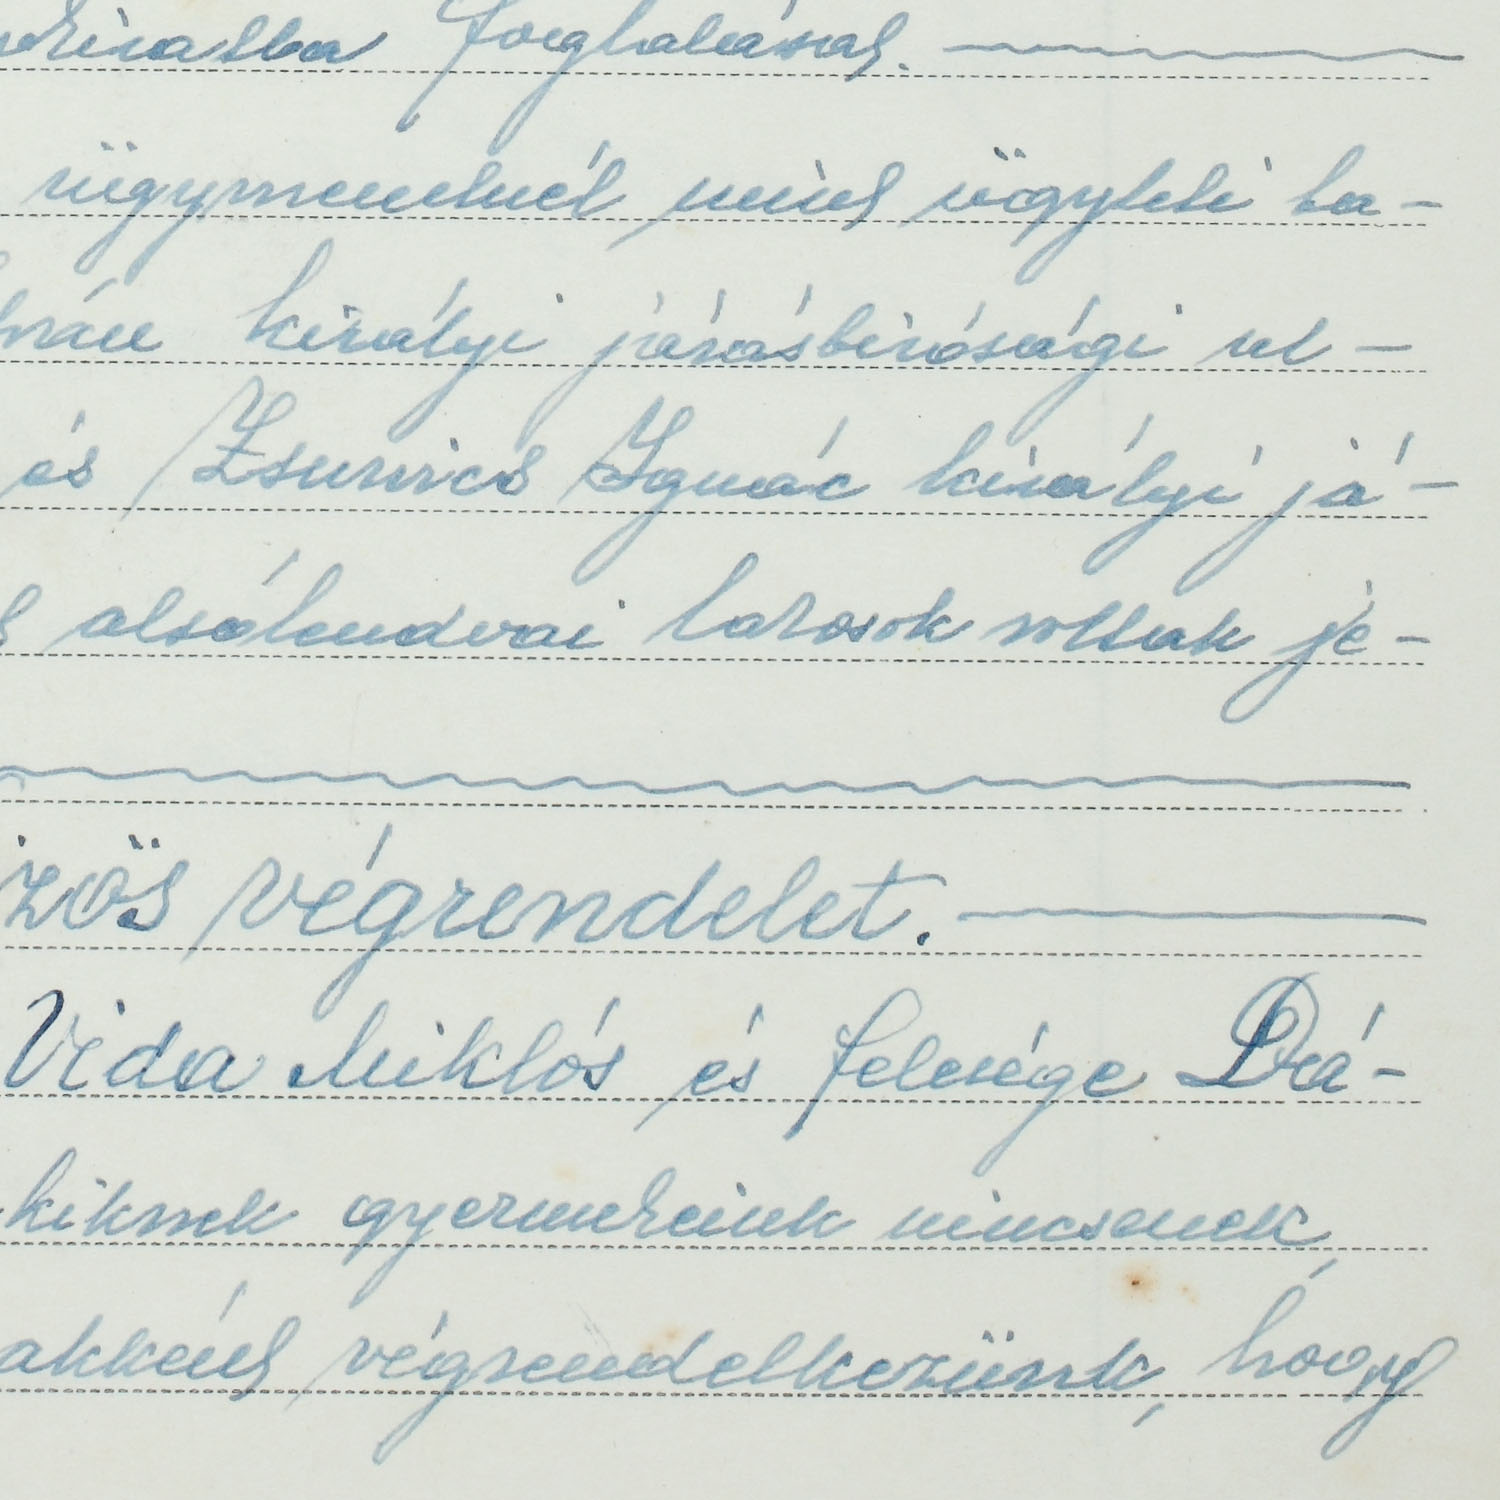 okiratba foglalását.
ügymenetnél mint ügyleti ta-
István királyi járásbirósági al-
és Zsunics Ignác királyi já-
alsólendvai lakosok voltak je-
zös végrendelet.
Vida Miklós és felesége Dá-
kiknek gyermekeink nincsenek,
akként végrendelkezünk, hogy